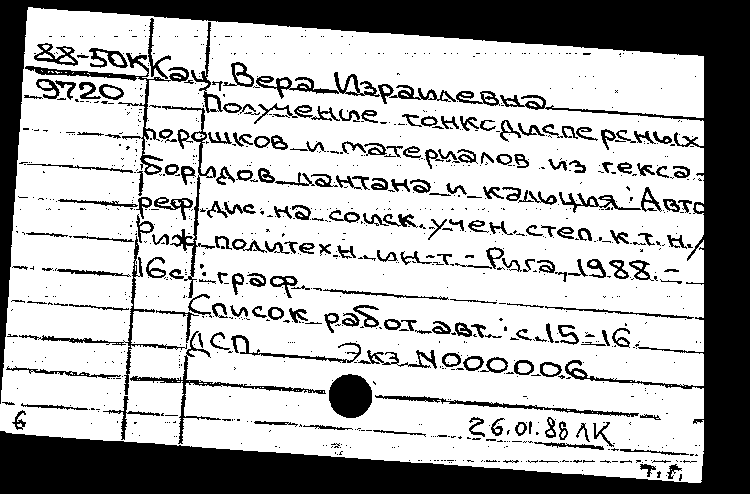 88-50К Кац, Вера Израилевна
9720 Получение тонкодисперсных
порошков и материалов из гекса-
боридов лантана и кальция : Авто
реф. дис. на соиск. учен. степ. к.т.н. /
Риж. политехн. ин-т. - Рига, 1988. -
16с. : граф.
Список работ авт. : с.15-16.
ДСП. Экз N000006.
6 26.01.88 ЛК